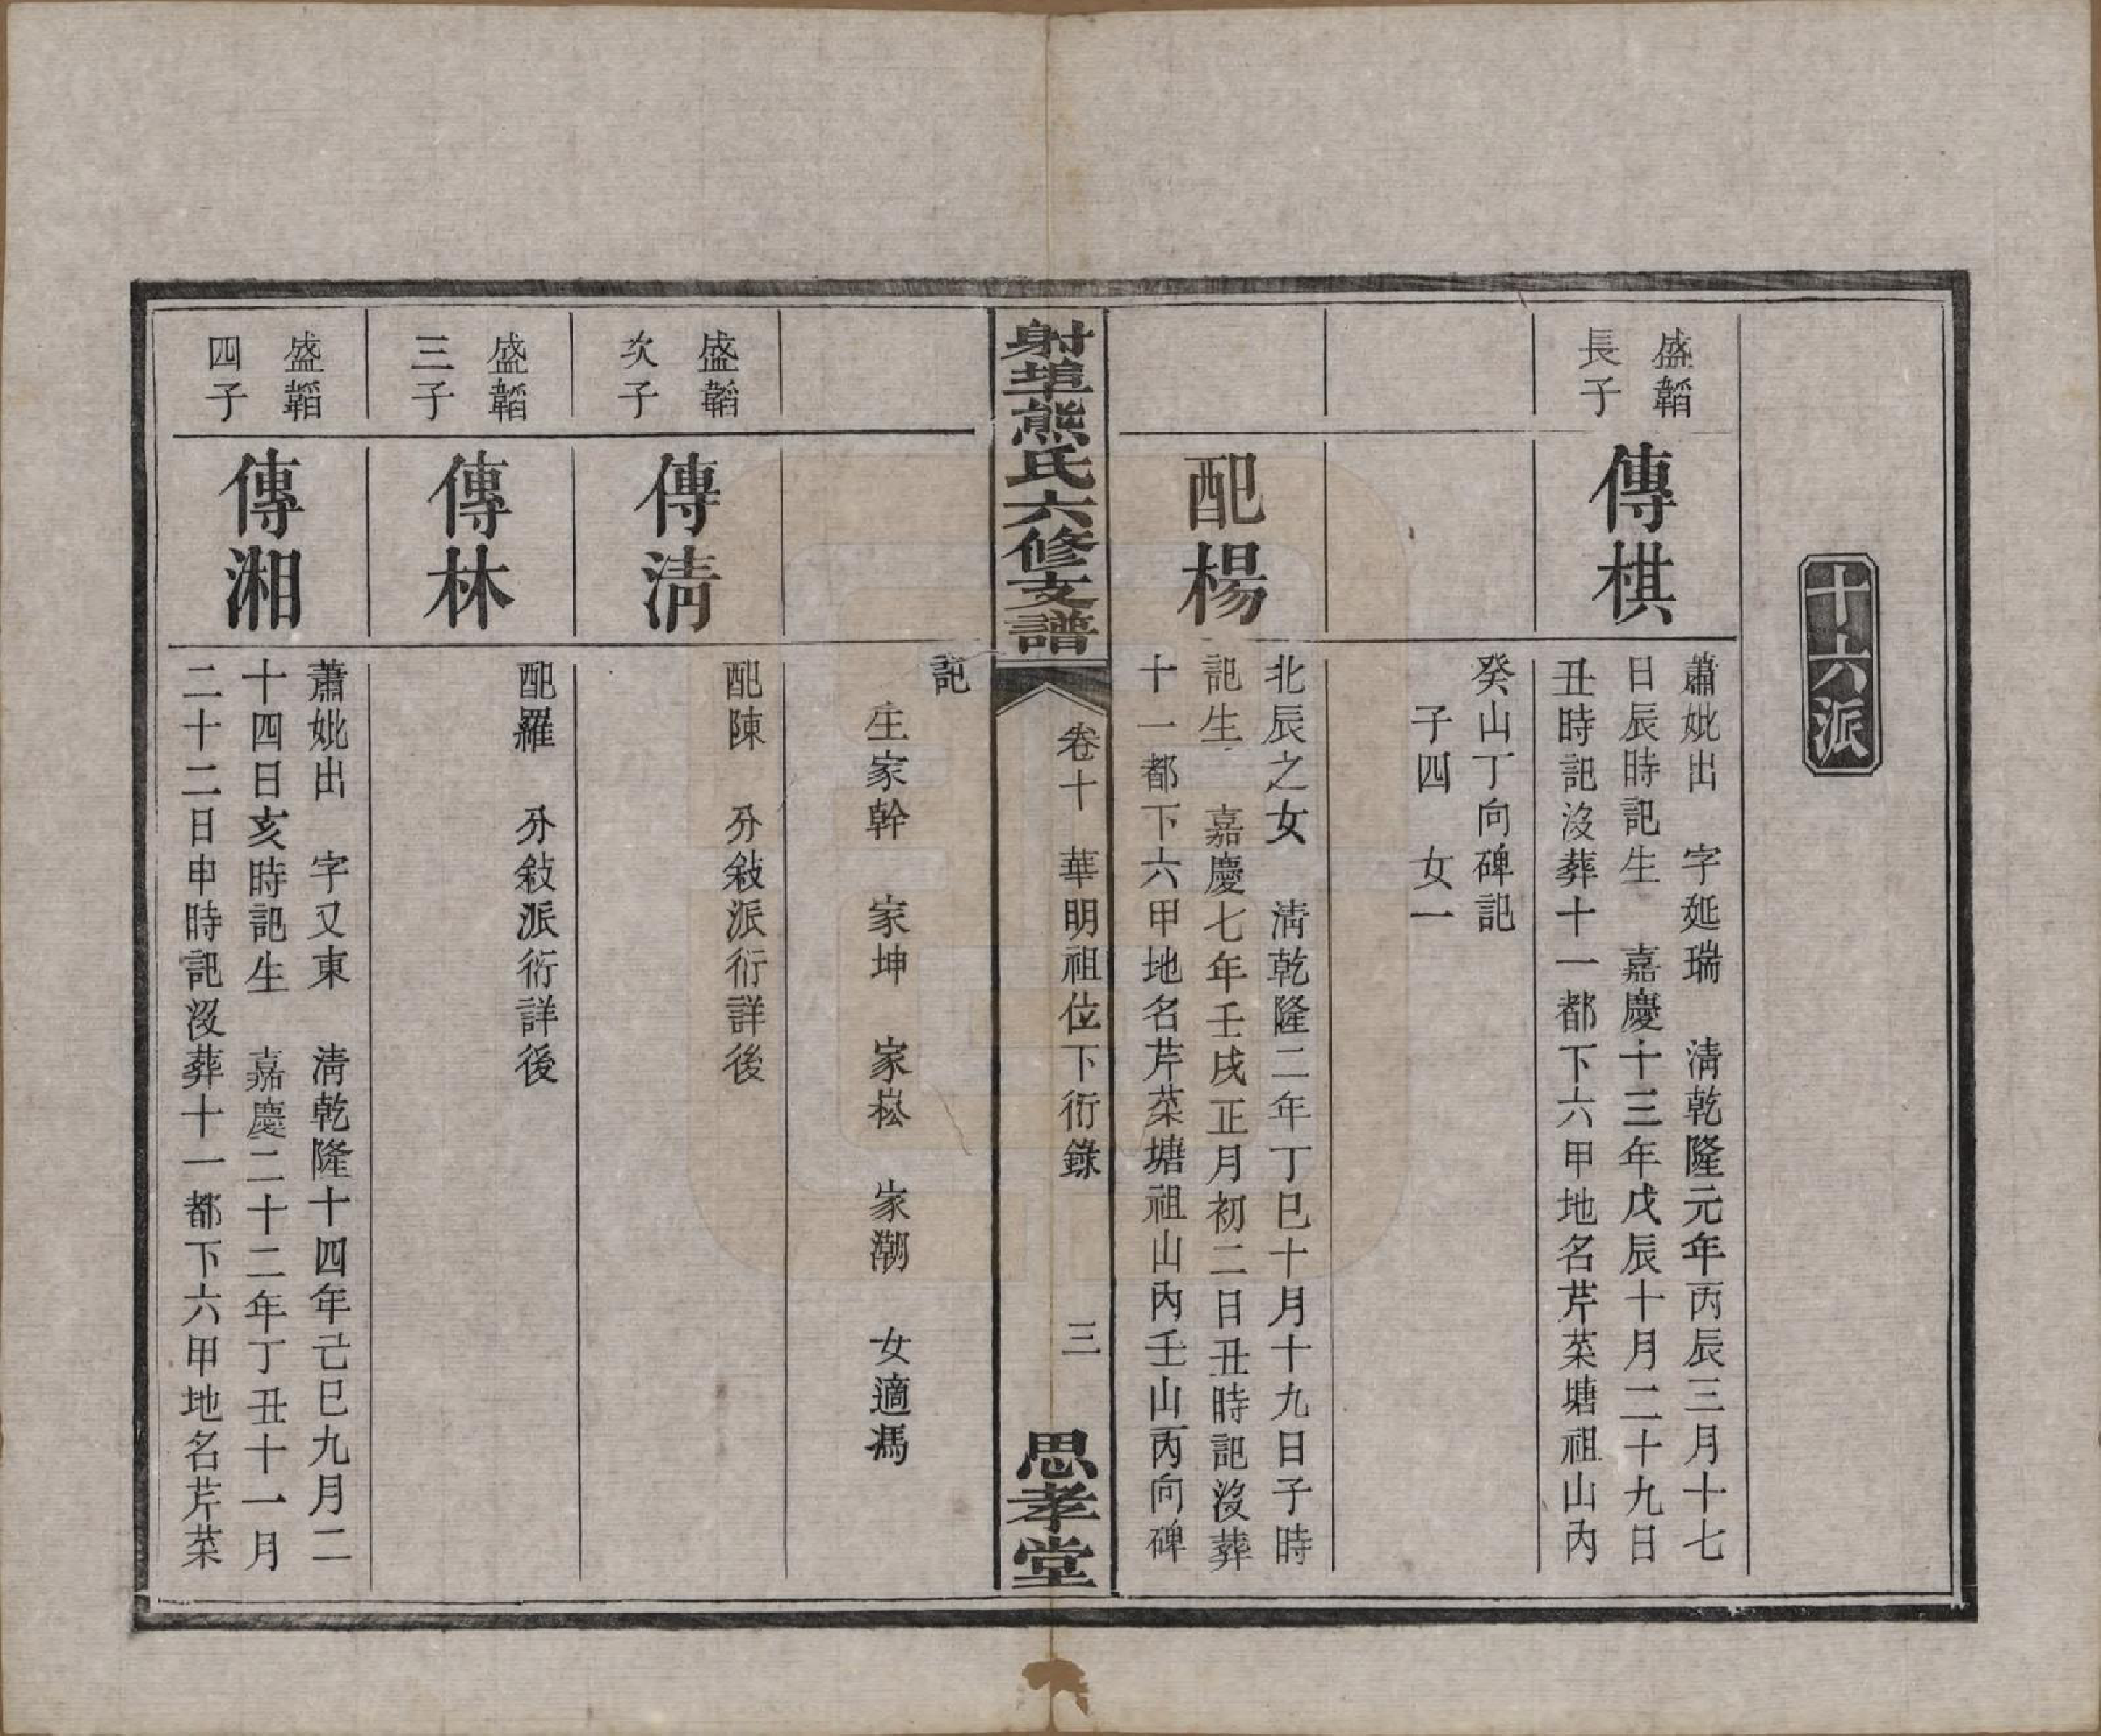 十六派
盛韜
長子
傳棋
蕭妣出　字㢟瑞　淸乾隆元年丙辰三月十七
日辰時記生　嘉慶十三年戊辰十月二十九日
丑時記沒葬十一都下六甲地名芹菜塘祖山內
癸山丁向碑記
子四　女一
配楊
北辰之女　淸乾隆二年丁巳十月十九日子時
記生　嘉慶七年壬戌正月初二日丑時記沒葬
十一都下六甲地名芹菜塘祖山內壬山丙向碑
射埠熊氏六修支譜
卷十　華明祖位下衍錄
三
思孝堂
記
生家幹　家坤　家崧　家潮　女適馮
盛韜
次子
傳淸
配陳　分敍派衍詳後
盛韜
三子
傳林
配羅　分敍派衍詳後
盛韜
四子
傳湘
蕭妣出　字又東　淸乾隆十四年己巳九月二
十四日亥時記生　嘉慶二十二年丁丑十一月
二十二日申時記沒葬十一都下六甲地名芹菜